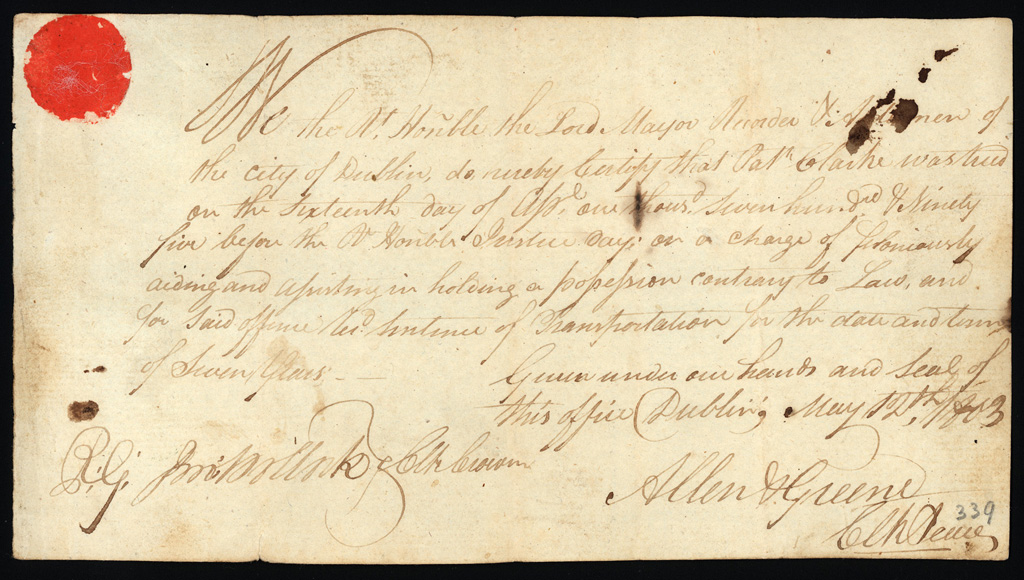 We the Rt. Honble the Lord Mayor Recorder & Aldermen of
the City of Dublin, do hereby Certify that Patk. Clarke was tried
on the Sixteenth day of Apl. one thousd. Seven hundrd & Ninety
five before the Rt Honble Justice Day; on a charge of feloniously
aiding and assisting in holding a possession contrary to Law, and
for said offence recd. Sentence of Transportation for the date and term
of Seven Years,
Given under our hands and Seal of
this office Dublin, May 12th, 1803
Jno. Pollock Clk Crown
Allen & Greene
Clk Peace
339